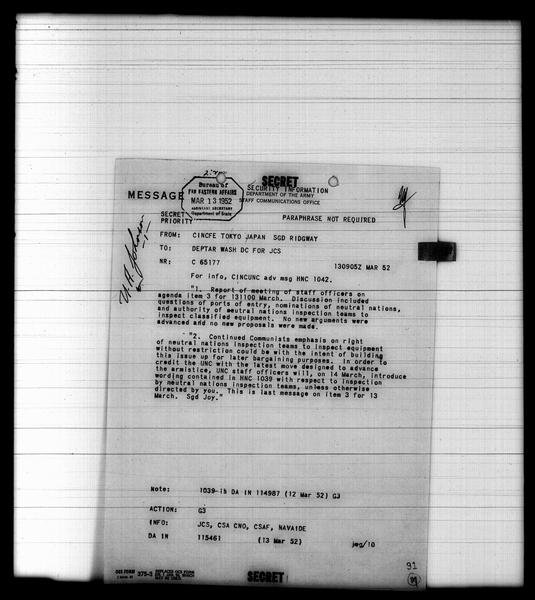 SECRET
Bureau of
FAR EASTERN AFFAIRS
MAR 13 1952
ASSISTANT SECRETARY
Department of State
SECURITY INFORMATION
DEPARTMENT OF THE ARMY
STAFF COMMUNICATIONS OFFICE
MESSAGE
SECRET
PRIORITY
PARAPHRASE NOT REQUIRED
FROM: CINCFE TOKYO JAPAN SGD RIDGWAY
TO: DEPTAR WASH DC FOR JCS
NR: C 65177 130905Z MAR 52
For info, CINCUNC adv msg HNC 1042.
"1. Report of meeting of staff officers on
agenda item 3 for 131100 March. Discussion included
questions of ports of entry, nominations of neutral nations,
and authority of neutral nations inspection teams to
inspect classified equipment. No new arguments were
advanced and no new proposals were made.
"2. Continued Communists emphasis on right
of neutral nations inspection teams to inspect equipment
without restriction could be with the intent of building
this issue up for later bargaining purposes. In order to
credit the UNC with the latest move designed to advance
the armistice, UNC staff officers will, on 14 March, introduce
wording contained in HNC 1039 with respect to inspection
by neutral nations inspection teams, unless otherwise
directed by you. This is last message on item 3 for 13
March. Sgd Joy."
Note: 1039-is DA IN 114987 (12 Mar 52) G3
ACTION: G3
INFO: JCS, CSA CNO, CSAF, NAVAIDE
DA IN 115461 (13 Mar 52) jeg/10
OCS FORM 375-3
REPLACES OCS FORM
SECRET
91